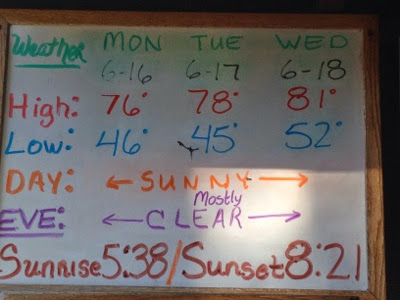 Weather MON TUE WED
6-16 6-17 6-18
High: 76° 78° 81°
Low: 46° 45° 52°
DAY: ← SUNNY →
Mostly
EVE: ← CLEAR →
Sunrise 5:38 / Sunset 8:21